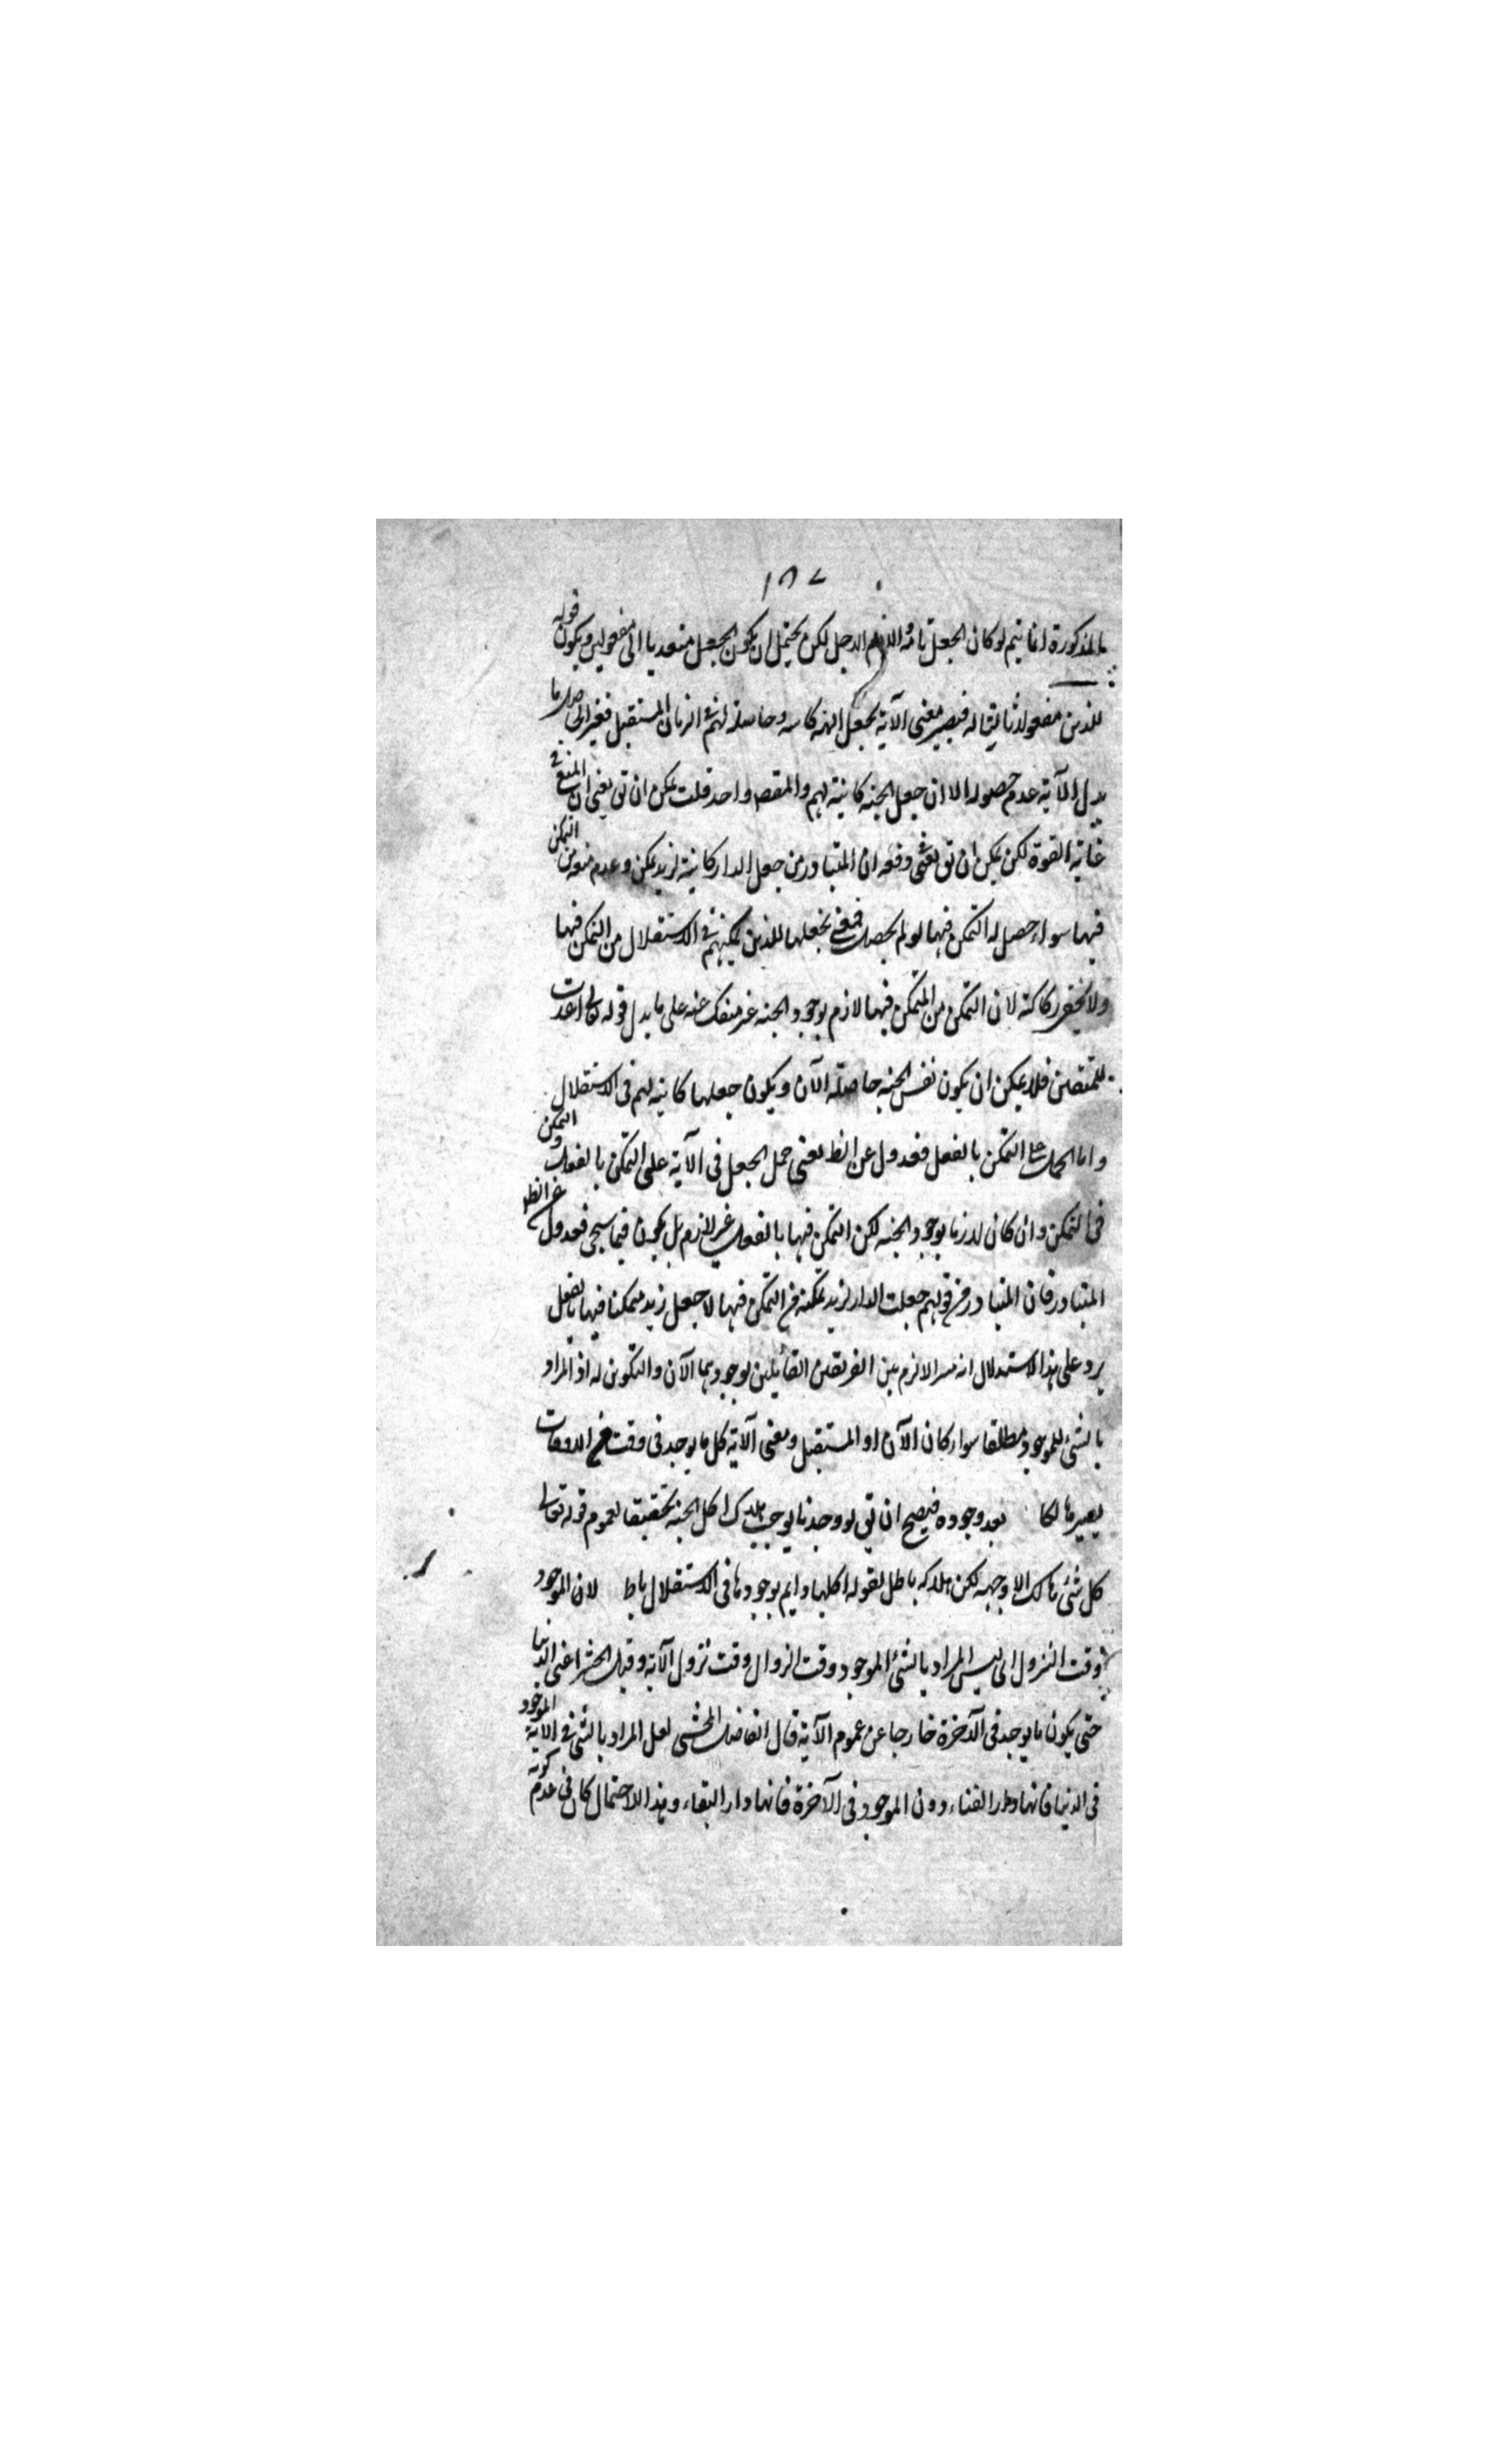 ١٨٧
ما المذكورة انما يتم لو كان الجعل تامة اللام الاجل لكن يحتمل ان يكون الجعل متعديا الى مفعولين ويكون قوله
للذين مفعولا ثانيا له فيصير معنى الآية نجعل الجنة كاسه وحاصلة لهم في الزمان المستقبل فغير
يدل الآية عدم حصولها الا ان جعل الجنة كائنة لهم والمقصد واحد قلت يمكن ان تق يعنى ان المنع في
غاية القوة لكن يمكن ان تق وفعه ان المتبادر من جعل الدار كائنة لزيد تمكن وعدم منعه من التمكن
فيها سواء حصل له التمكن فيها او لم يحصل فمعنى نجعلها للذين تمكينهم في الاستقلال من التمكن فيها
ولا يخفى ركاكته لان التمكن من التمكن فيها لازم بوجود الجنة غير منفك عنه على ما يدل قوله تعالى اعدت
للمتقين فلا يمكن ان يكون نفس الجنة حاصلة الآن ويكون جعلها كائنة لهم في الاستقلال
واما الحمل على التمكن بالفعل فعدول عن الظ يعنى حمل الجعل في الآية على التمكن بالفعل والتمكن
في التمكن وان كان لازما بوجود الجنة لكن التمكن فيها بالفعل غير لازم بل يكون فيما سيجى فعدول عن الظ
المتبادر فان المتبادر من قولهم جعلت الدار لزيد تمكنه من التمكن فيها لا جعل زيد متمكنا فيها بالفعل
يرد على هذا الاستدلال انه مسر الالزم بين الفريقين القائلين بوجودهما الآن والتكوين له اذ المراد
بالشئ الموجود مطلقا سواء كان الآن او المستقبل ومعنى الآية كل ما يوجد في وقت من الاوقات
يصير هالكا بعد وجوده فيصح ان يق لو وجدتا يوجب هلاك اكل الجنة تحقيقا لعموم قوله تعالى
كل شئ هالك الا وجهه لكن هلاكه باطل لقوله اكلها دايم بوجودها في الاستقلال باط لان الموجود
وقت النزول اى ليس المراد بالشئ الموجود وقت الزوال وقت نزول الآية وقبل الحشر اعنى الدنيا
حتى يكون ما يوجد في الآخرة خارجا عن عموم الآية قال الفاضل المحشى لعل المراد بالشئ في الآية الموجود
في الدنيا فانها دار الفناء دون الموجود في الآخرة فانها دار البقاء وهذا الاحتمال كان في عدم كونه